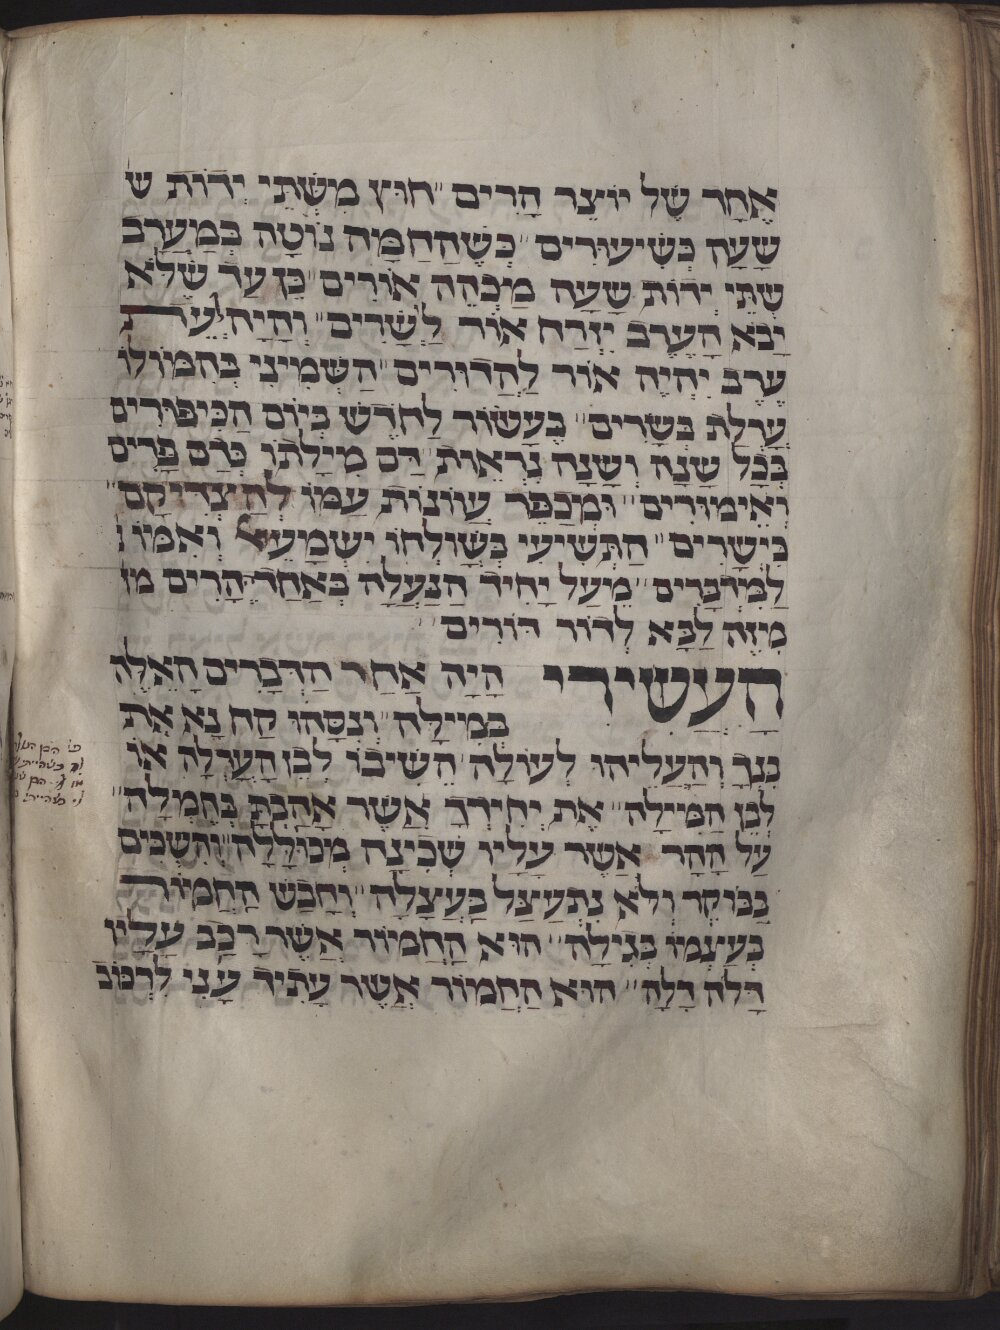 אֶחָד שֶׁל יוֹצֵר הָרִים״ חוּץ מִשְּׁתֵּי יְדוֹת שׁ
שָׁעָה בְּשִׁיעוּרִים״ כְּשֶׁהַחַמָּה נוֹטָה בְּמַעֲרָב
שְׁתֵּי יְדוֹת שָׁעָה מַכְהָה אוֹרִים״ כֵּן עַד שֶׁלֹּא
יָבֹא הָעֶרֶב יִזְרַח אוֹר לַשָּׁרִים״ וְהָיָה לְעֵת
עֶרֶב יִהְיֶה אוֹר לַהֲדוּרִים״ הַשְּׁמִינִי בְּהִמּוֹלוֹ
עָרְלַת בְּשָׂרִים״ בֶּעָשׂוֹר לַחֹדֶשׁ בְּיוֹם הַכִּיפּוּרִים
בְּכָל שָׁנָה וְשָׁנָה נִרְאֵית דַּם מִילָתוֹ כְּדַם פָּרִים
וְאֵימוּרִים״ וּמְכַפֵּר עֲוֹנוֹת עַמּוֹ לְהַצְדִּיקָם״
כִּישָׁרִים״ הַתְּשִׁיעִי בְּשׁוֹלְחוֹ יִשְׁמָעֵאל וְאִמּוֹ
לַמִּדְבָּרִים״ מֵעַל יָחִיד הַנַּעֲלָה בְּאַחַד הֶהָרִים
מִזֶּה לַבָּא לְדוֹר דּוֹרִים״
הָעֲשִׂירִי הָיָה אַחַר הַדְּבָרִים הָאֵלֶּה
בְּמִילָּה״ וְנִסָּהוּ קַח נָא אֶת
בִּנְךָ וְהַעֲלֵיהוּ לְעוֹלָה הֱשִׁיבוֹ לְבֶן הָעָרְלָה אוֹ
לְבֶן הַמִּילָה״ אֶת יְחִידְךָ אֲשֶׁר אָהַבְתָּ בְּחֶמְלָה״
עַל הָהָר אֲשֶׁר עָלָיו שְׁכִינָה מְכוּלָּלָה״ וְהִשְׁכִּים
בַּבּוֹקֶר וְלֹא נִתְעַצֵּל בְּעַצְלָה״ וְחָבַשׁ הַחֲמוֹר
בְּעַצְמוֹ בְּגִילָה״ הוּא הַחֲמוֹר אֲשֶׁר רָכַב עָלָיו
דָּלֹה דָלָה״ הוּא הַחֲמוֹר אֲשֶׁר עָתִיד עָנִי לִרְכּוֹב